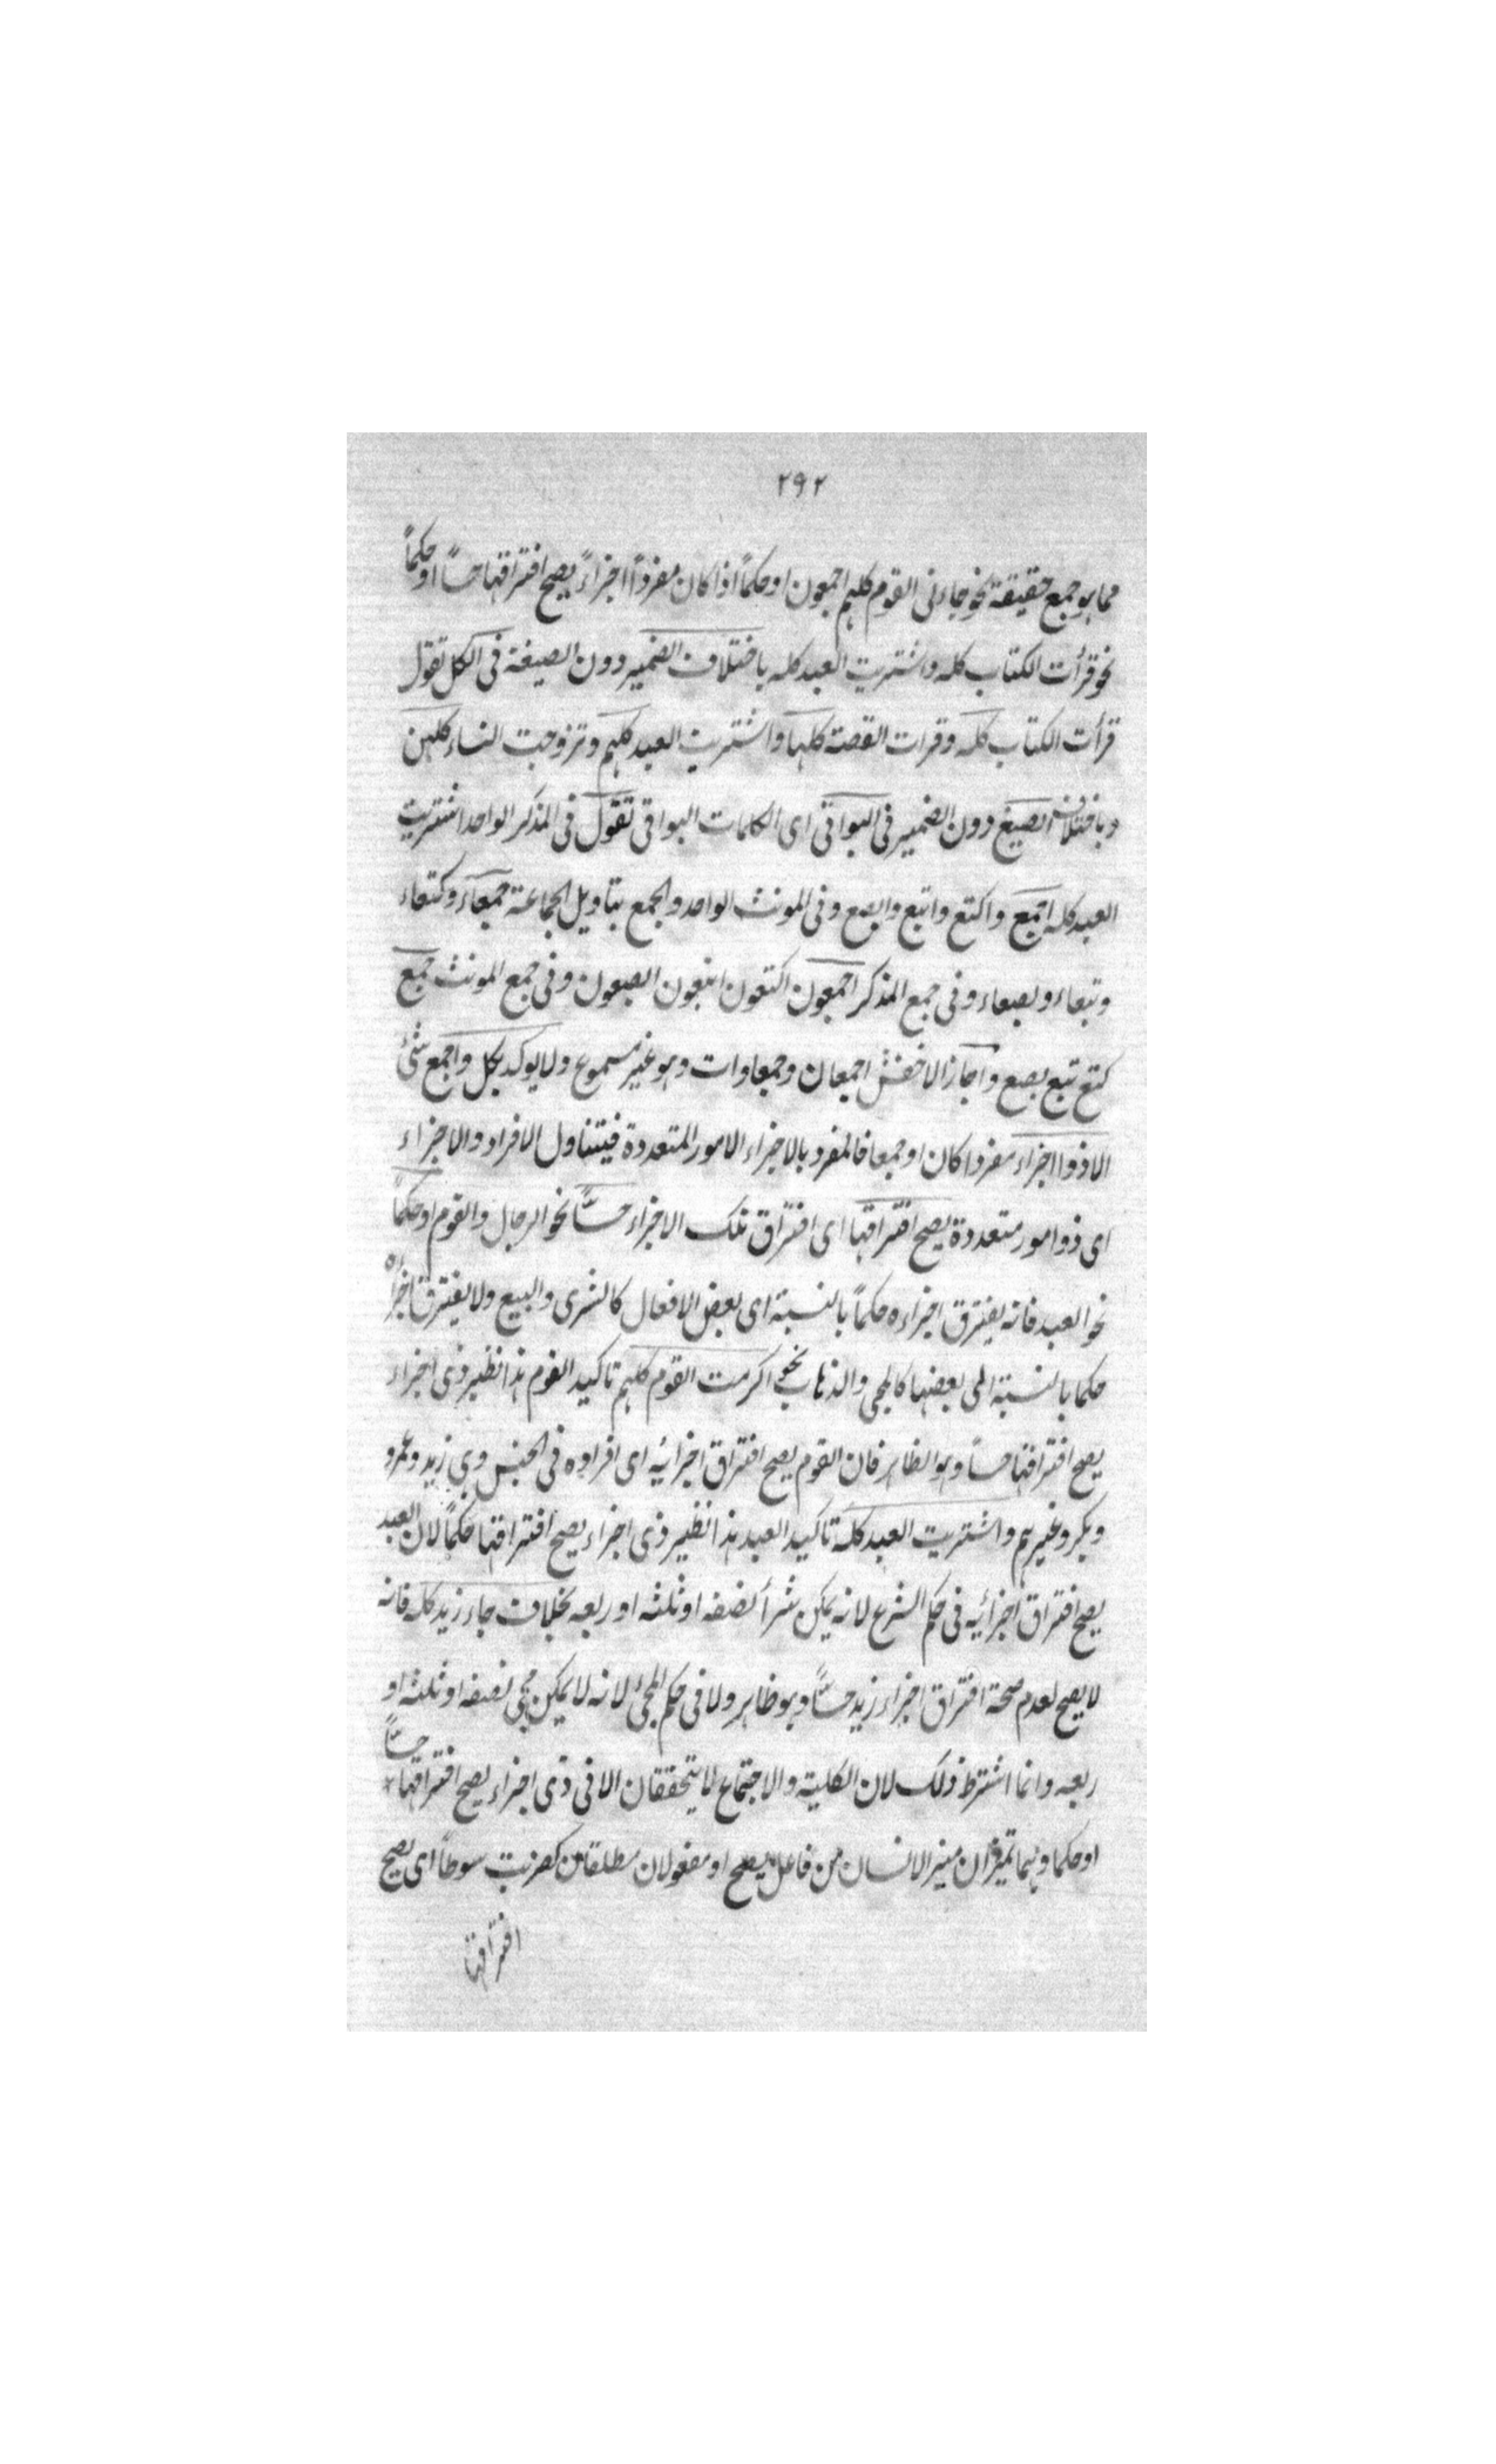 ٢٩٢
مما هو جمع حقيقة نحو جاءنى القوم كلهم اجمعون او حكماً اذا كان مفرداً اجزاءً يصح افتراقها حساً او حكماً
نحو قرأت الكتاب كله واشتريت العبد كله باختلاف الضمير دون الصيغة فى الكل تقول
قرأت الكتاب كله وقرات القصة كلها واشتريت العبيد كلهم وتزوجت النساء كلهن
وباختلاف الصيغ دون الضمير فى البواقى اى الكلمات البواقى تقول فى المذكر الواحد اشتريت
العبد كله اجمع واكتع واتبع وابصع وفى المونث الواحد والجمع بتاويل الجماعة جمعاء وكتعاء
وتبعاء وبصعاء وفى جمع المذكر اجمعون اكتعون اتبعون ابصعون وفى جمع المونث جمع
كتع تبع بصع واجاز الاخفش اجمعان وجمعاوات وهو غير مسموع ولا يوكد بكل واجمع شئ
الا ذوا اجزاء مفردا كان او جمعا فالمفرد بالاجزاء الامور المتعددة فيتناول الافراد والاجزاء
اى ذو امور متعددة يصح افتراقها اى افتراق تلك الاجزاء حسًّا نحو الرجال والقوم او حكماً
نحو العبد فانه يفترق اجزاءه حكماً بالنسبة اى بعض الافعال كالشرى والبيع ولا يفترق اجزاءه
حكما بالنسبة الى بعضها كالمجى والذهاب نحو اكرمت القوم كلهم تاكيد القوم هذا نظير ذى اجزاء
يصح افتراقها حساً وهو الظاهر فان القوم يصح افتراق اجزائيه اى افراده فى الجنس وهى زيد وعمرو
وبكر وغيرهم واشتريت العبد كله تاكيد العبد هذا نظير ذى اجزاء يصح افتراقها حكماً لان العبد
يصح افتراق اجزائيه فى حكم الشرع لانه يمكن شرأ نصفه او ثلثه او ربعه بخلاف جاء زيد كله فانه
لا يصح لعدم صحة افتراق اجزاء زيد حسًّا وهو ظاهر ولا فى حكم المجئ لانه لا يمكن مجى نصفه او ثلثه او
ربعه وانما اشترط ذلك لان الكلية والاجتماع لا يتحققان الا فى ذى اجزاء يصح افتراقها حسًّا
او حكما وهما تميزان ميز الانسان من فاعل يصح او مفعولان مطلقان كضربت سوطاً اى يصح
افتراقها